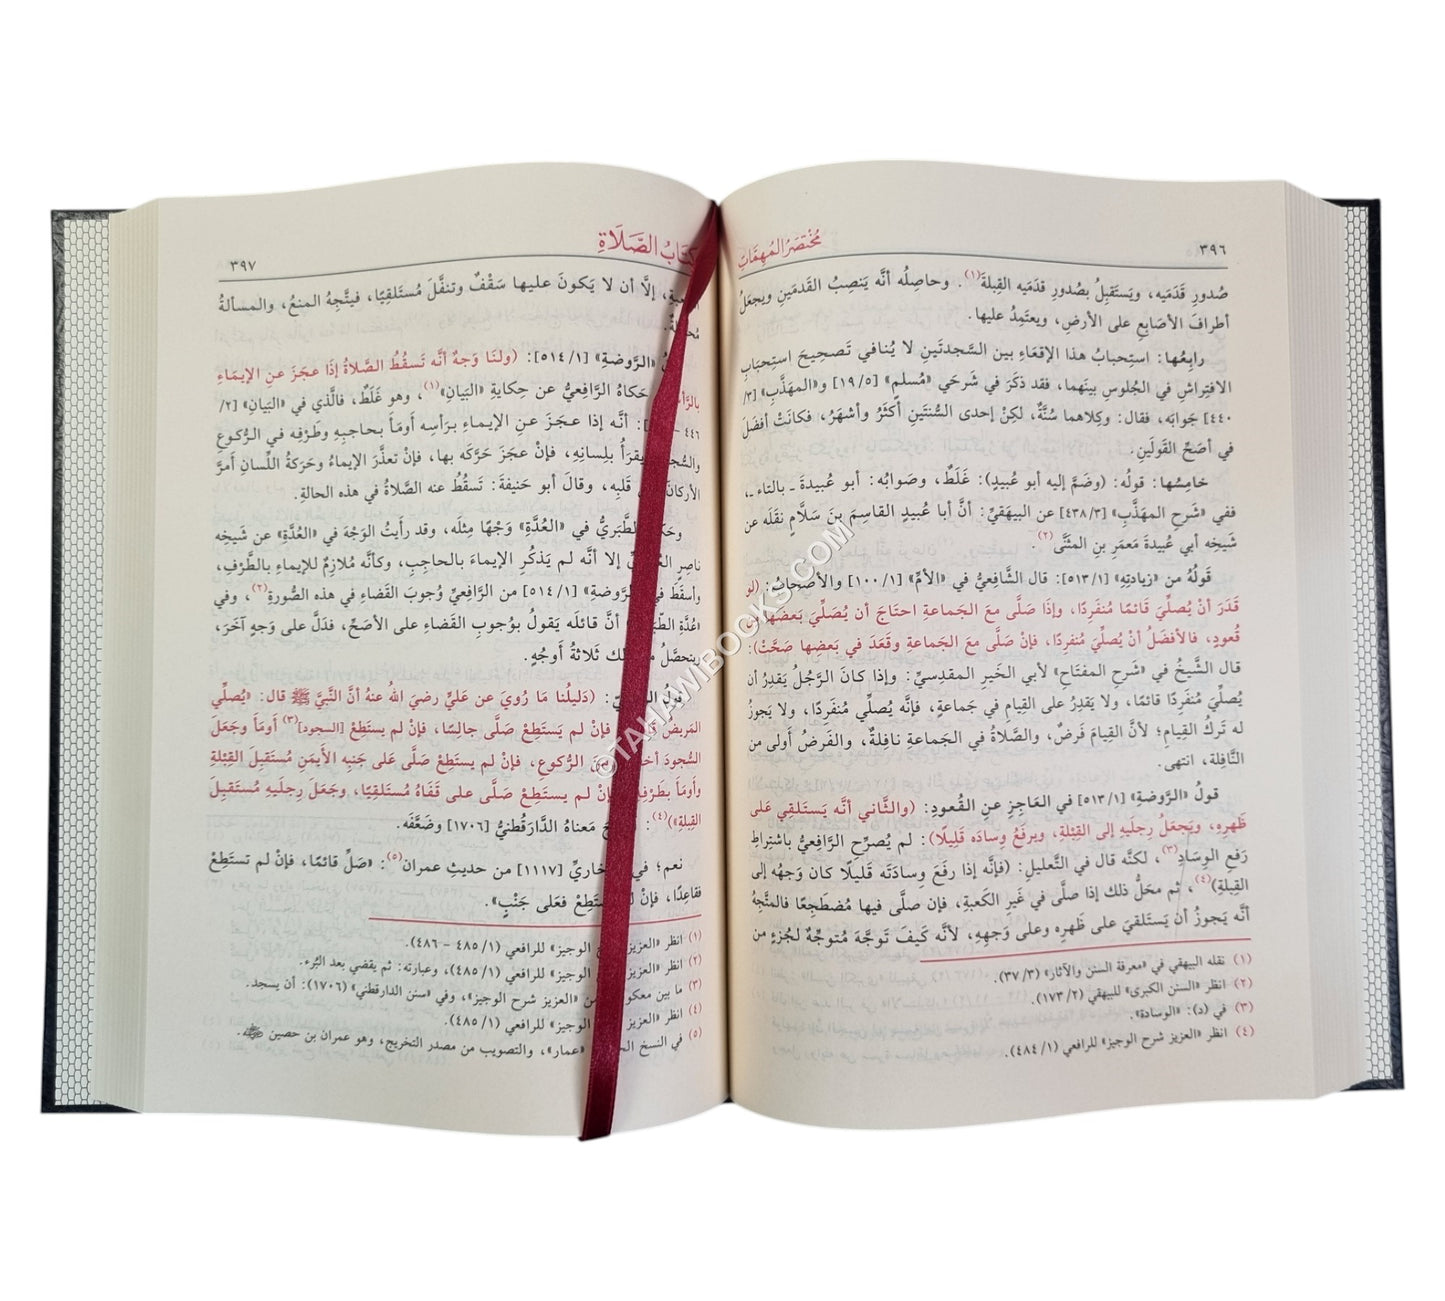 ٣٩٦ مُخْتَصَرُ المُهِمَّاتِ
صُدورِ قَدَمَيه، ويَستَقبِلُ بصُدورِ قدَمَيه القِبلةَ(١). وحاصِلُه أنَّه يَنصِبُ القَدمَينِ ويجعَلُ
أطرافَ الأصَابِعِ على الأرضِ، ويعتَمِدُ عليها.
رابِعُها: استِحبابُ هذا الإقعَاءِ بين السَّجدتَينِ لا يُنافي تَصحِيحَ استِحبَابِ
الافتِراشِ في الجُلوسِ بينَهما، فقد ذكَرَ في شَرحَي «مُسلمٍ» [٥/ ١٩] و«المهَذَّبِ» [٣/
٤٤٠] جَوابَه، فقال: وكِلاهما سُنَّةٌ، لكِنْ إحدى السُّنتَينِ أكثَرُ وأشهَرُ، فكانَتْ أفضَلَ
في أصَحِّ القَولَينِ.
خامِسُها: قولُه: (وضَمَّ إليه أبو عُبيدٍ): غَلَطٌ، وصَوابُه: أبو عُبيدةَ ـ بالتاء ـ،
ففي «شَرحِ المهَذَّبِ» [٣/ ٤٣٨] عن البيهَقيِّ: أنَّ أبا عُبيدٍ القاسِمَ بنَ سَلَّامٍ نقَلَه عن
شَيخِه أبي عُبيدةَ مَعمَرِ بنِ المثَنَّى(٢).
قَولُهُ من «زيادتِهِ» [١/ ٥١٣]: قال الشَّافِعيُّ في «الأمِّ» [١/ ١٠٠] والأصْحابُ: (لو
قَدَرَ أنْ يُصلِّيَ قائمًا مُنفَرِدًا، وإذَا صَلَّى معَ الجَماعةِ احتَاجَ أن يُصَلِّيَ بَعضَها مِن
قُعودٍ، فالأفضَلُ أنْ يُصَلِّيَ مُنفرِدًا، فإنْ صَلَّى معَ الجَماعةِ وقَعَدَ في بَعضِها صَحَّتْ):
قال الشَّيخُ في «شَرحِ المفتَاحِ» لأبي الخَيرِ المقدِسيِّ: وإذا كانَ الرَّجُلُ يَقدِرُ أن
يُصلِّيَ مُنفَرِدًا قائمًا، ولا يَقدِرُ على القِيامِ في جَماعةٍ، فإنَّه يُصلِّي مُنفَرِدًا، ولا يَجوزُ
له تَركُ القِيامِ؛ لأنَّ القِيامَ فَرضٌ، والصَّلاةَ في الجَماعةِ نافِلةٌ، والفَرضُ أَولى من
النَّافِلة، انتهى.
قولُ «الرَّوضةِ» [١/ ٥١٣] في العَاجِزِ عنِ القُعودِ: (والثَّاني أنَّه يَستَلقِي عَلى
ظَهرِهِ، ويَجعَلُ رِجلَيهِ إلى القِبْلةِ، ويرفَعُ وِسادَه قَلِيلًا): لم يُصرِّحِ الرَّافِعيُّ باشْتِراطِ
رَفعِ الوِسَادِ(٣)، لكنَّه قال في التَّعليلِ: (فإنَّه إذا رفَعَ وِسادَتَه قَليلًا كان وَجهُه إلى
القِبلةِ)(٤)، ثم محَلُّ ذلك إذا صلَّى في غَيرِ الكَعبةِ، فإن صلَّى فيها مُضطَجِعًا فالمتَّجِهُ
أنَّه يَجوزُ أن يَستَلقيَ على ظَهرِه وعلى وَجهِهِ، لأنَّه كَيفَ تَوجَّهَ مُتوجِّهٌ لجُزءٍ من
(١) نقله البيهقي في «معرفة السنن والآثار» (٣/ ٣٧).
(٢) انظر «السنن الكبرى» للبيهقي (٢/ ١٧٣).
(٣) في (د): «الوسادة».
(٤) انظر «العزيز شرح الوجيز» للرافعي (١/ ٤٨٤).
كِتَابُ الصَّلَاةِ ٣٩٧
إلَّا أن لا يَكونَ عليها سَقْفٌ وتنفَّلَ مُستَلقِيًا، فيتَّجِهُ المنعُ، والمسألةُ
«الرَّوضةِ» [١/ ٥١٤]: (ولنَا وَجهٌ أنَّه تَسقُطُ الصَّلاةُ إذَا عجَزَ عنِ الإيمَاءِ
حَكاهُ الرَّافِعيُّ عن حِكايةِ «البَيانِ»(١)، وهو غَلَطٌ، فالَّذي في «البَيانِ» [٢/
٤٤٦ : أنَّه إذا عجَزَ عنِ الإيماءِ برَأسِه أَومَأَ بحاجبِهِ وطَرْفِه في الرُّكوعِ
يقرَأُ بلِسانِهِ، فإنْ عجَزَ حَرَّكَه بها، فإنْ تعذَّرَ الإيماءُ وحَرَكةُ اللِّسانِ أمَرَّ
قَلبِه، وقالَ أبو حَنيفةَ: تَسقُطُ عنه الصَّلاةُ في هذه الحالةِ.
الطَّبَريُّ في «العُدَّةِ» وَجْهًا مِثلَه، وقد رأَيتُ الوَجْهَ في «العُدَّةِ» عن شَيخِه
ناصِرٍ إلا أنَّه لم يَذكُرِ الإيماءَ بالحاجِبِ، وكأنَّه مُلازِمٌ للإيماءِ بالطَّرْفِ،
وأسقَطَ [١/ ٥١٤] من الرَّافِعيِّ وُجوبَ القَضاءِ في هذه الصُّورةِ(٢)، وفي
«عُدَّةِ أنَّ قائلَه يَقولُ بوُجوبِ القَضاءِ على الأصَحِّ، فدَلَّ على وَجهٍ آخَرَ،
ويتحصَّلُ ثَلاثةُ أَوجُهٍ.
قولُ : (دَليلُنا مَا رُويَ عن عَليٍّ رضيَ اللهُ عنهُ أنَّ النَّبيَّ ﷺ قال: «يُصلِّي
المَريضُ فإنْ لم يَستَطِعْ صَلَّى جالِسًا، فإنْ لم يستَطِعْ [السجود](٣) أَومَأَ وجَعَلَ
السُّجودَ الرُّكوعِ، فإنْ لم يستَطِعْ صَلَّى عَلى جَنبِه الأيمَنِ مُستَقبِلَ القِبْلةِ
وأَومَأَ بطَرْفِه، لم يستَطِعْ صَلَّى على قَفَاهُ مُستَلقِيًا، وجَعَلَ رِجلَيهِ مُستَقبِلَ
القِبلةِ»)(٤): مَعناهُ الدَّارَقُطنيُّ [١٧٠٦] وضَعَّفَه.
نعم؛ في [١١١٧] من حديثِ عمران(٥): «صَلِّ قائمًا، فإنْ لم تَستَطِعْ
فقاعِدًا، فإنْ فعَلى جَنْبٍ».
(١) انظر «العزيز الوجيز» للرافعي (١/ ٤٨٥ - ٤٨٦).
(٢) انظر «العزيز الوجيز» للرافعي (١/ ٤٨٥)، وعبارته: ثم يقضي بعد البُرء.
(٣) ما بين «العزيز شرح الوجيز»، وفي «سنن الدارقطني» (١٧٠٦): أن يسجد.
(٤) انظر «العزيز الوجيز» للرافعي (١/ ٤٨٥).
(٥) في النسخ «عمار»، والتصويب من مصدر التخريج، وهو عمران بن حصين
©TAHAMIBOOKS.COM